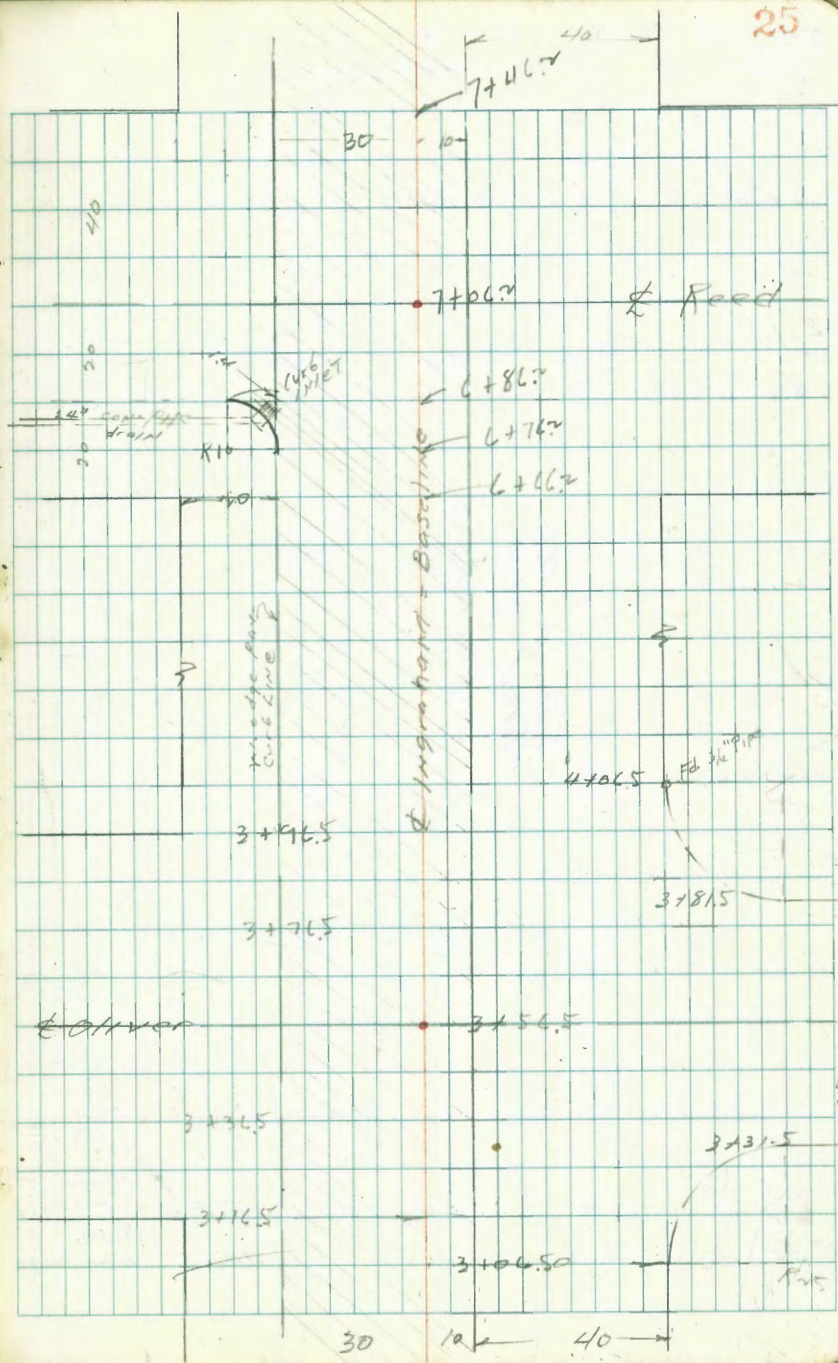 25
40
7+46.2
30
10
40
7+06.2
℄ Reed
20
6+86.2
Curb
INLET
24" conc pipe
drain
6+76.2
R10
20
6+66.2
20
℄ Ingraham = Base Line
W. edge Pav.
Curb Line
4+06.5
Fd. 3/4" Pipe
3+96.5
3+81.5
3+76.5
℄ Oliver
3+56.5
3+36.5
3+31.5
3+16.5
3+06.50
R25
30
10
40